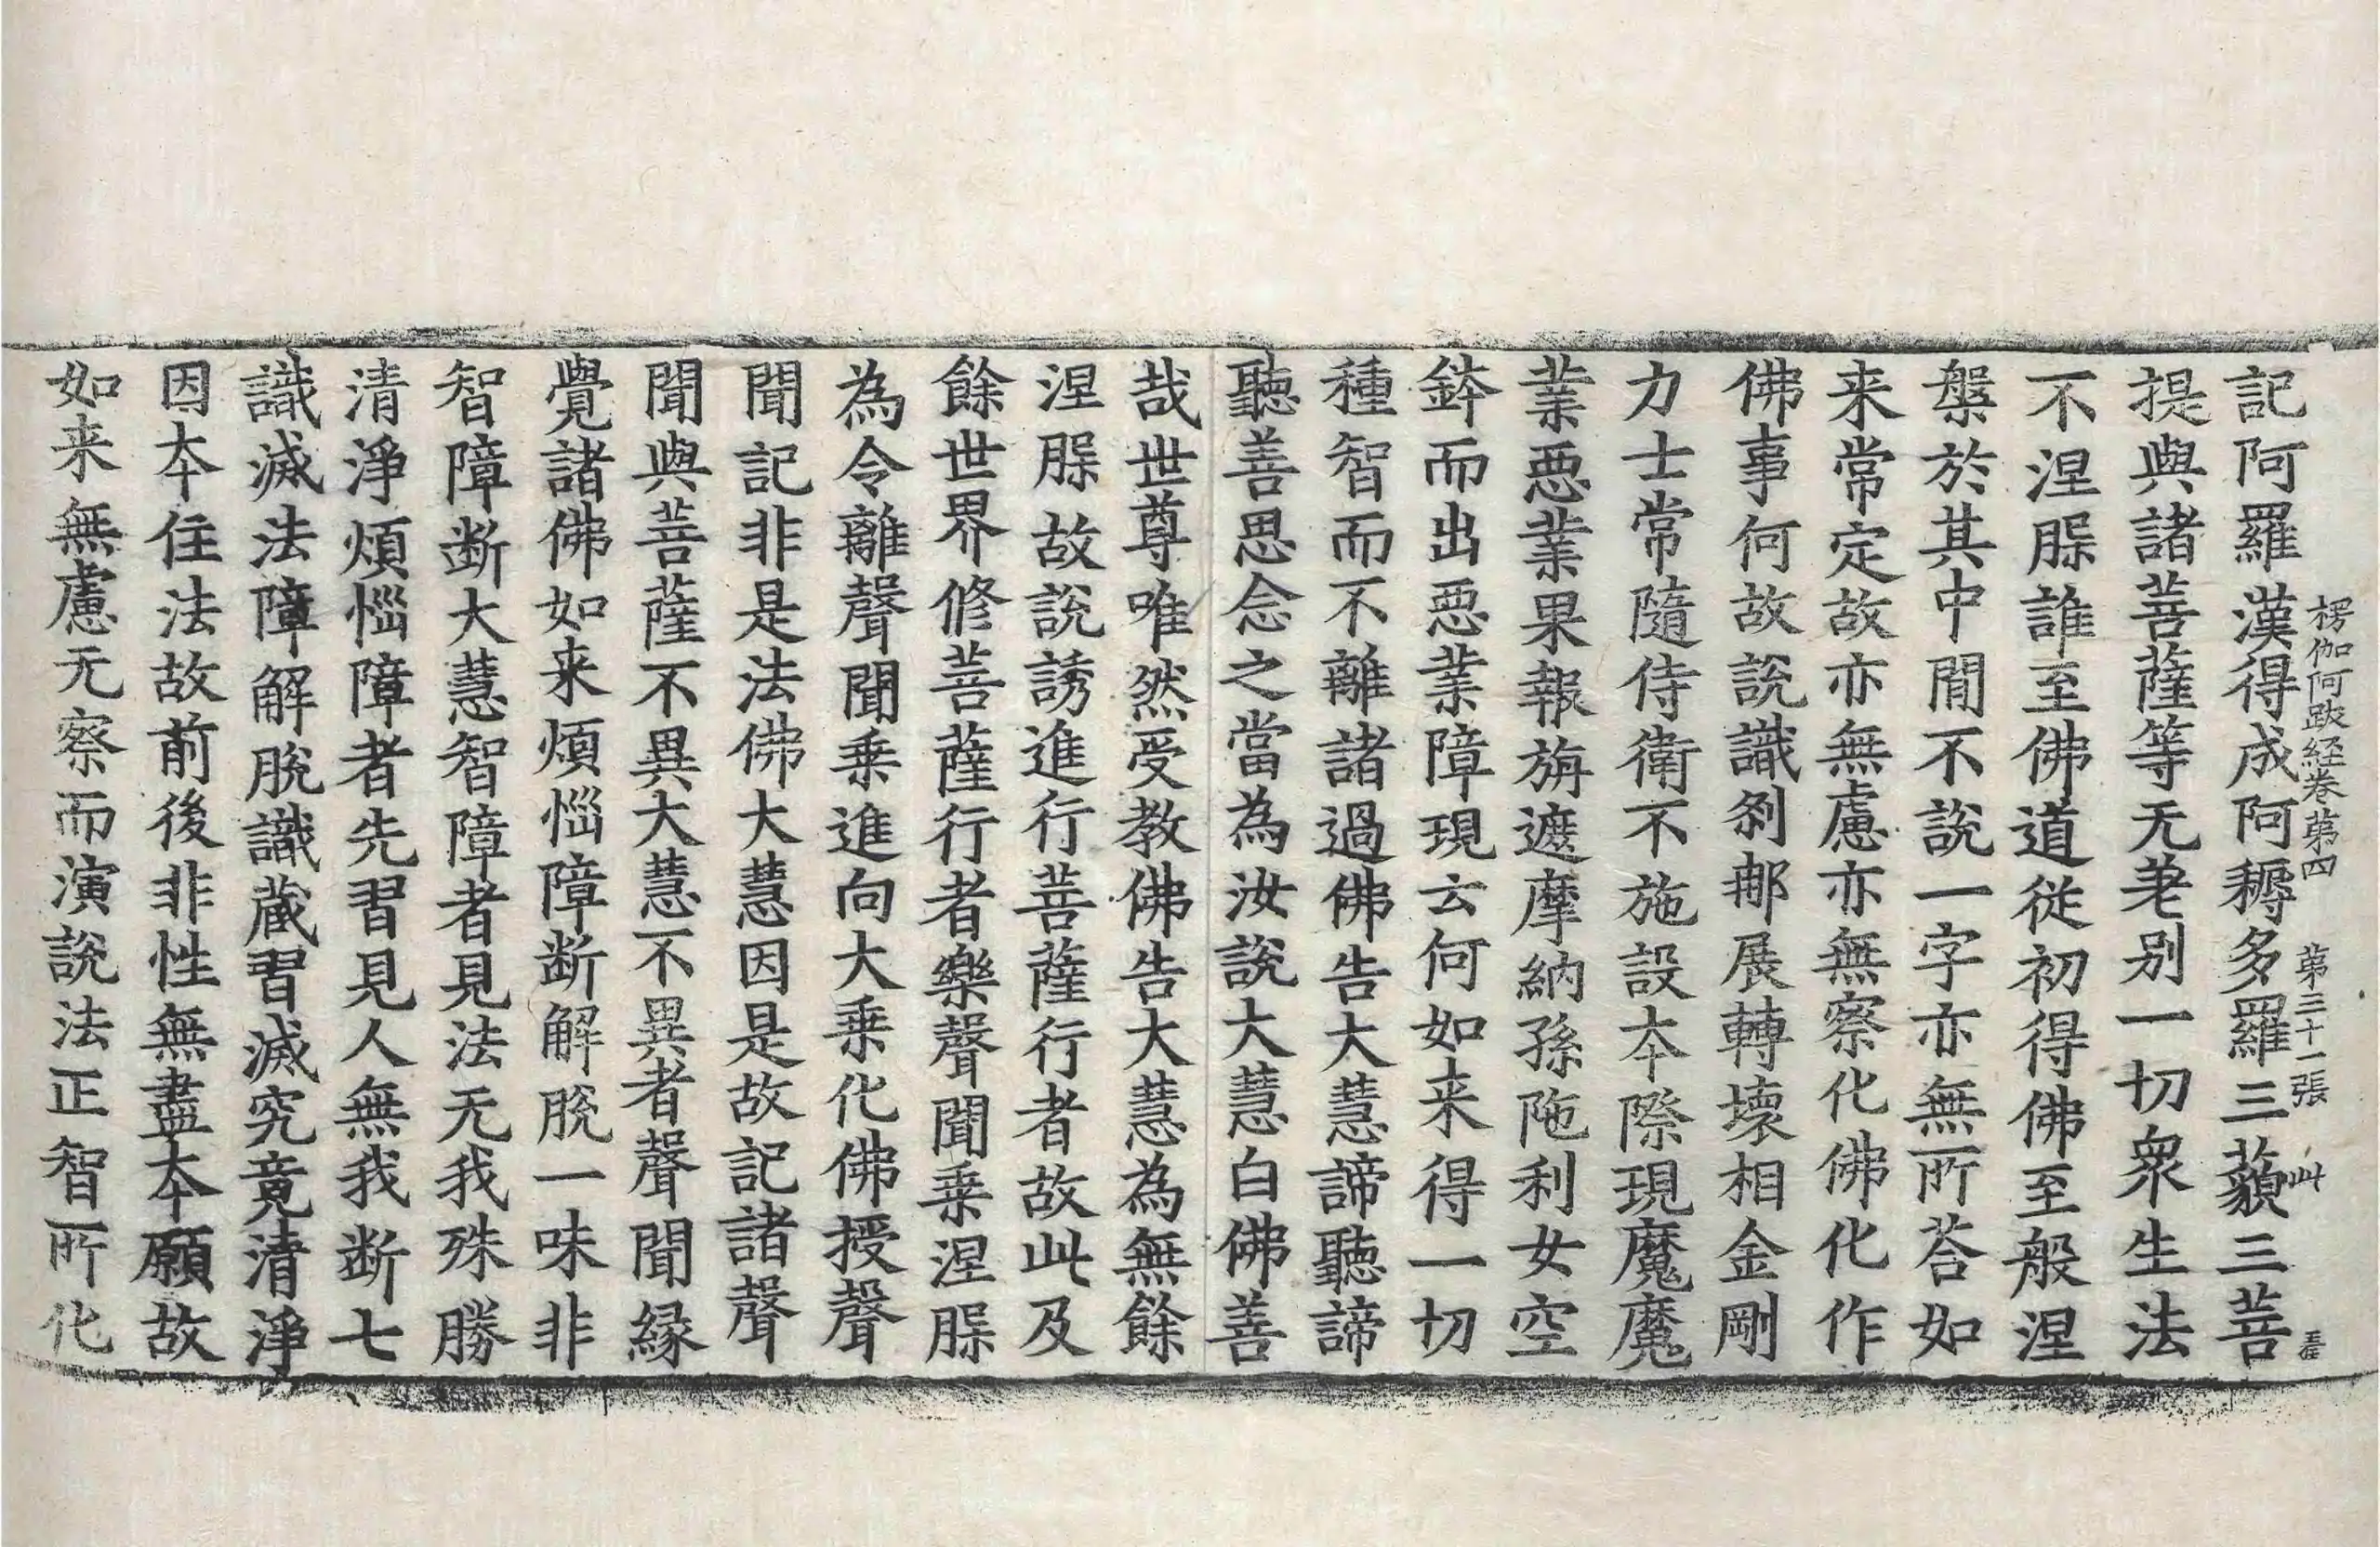 楞伽阿跋経巻苐四　苐三十一張　此
記阿羅漢得成阿耨多羅三藐三菩
提與諸菩薩等无差别一切衆生法
不涅槃誰至佛道従初得佛至般涅
槃於其中閒不說一字亦無所荅如
来常定故亦無慮亦無察化佛化作
佛事何故說識刹那展轉壞相金剛
力士常隨侍衛不施設夲際現魔魔
業惡業果報旃遮摩納孫陁利女空
鉢而出惡業障現云何如来得一切
種智而不離諸過佛告大慧諦聽諦
聽善思念之當為汝說大慧白佛善
哉世尊唯然受教佛告大慧為無餘
涅槃故說誘進行菩薩行者故此及
餘世界修菩薩行者樂聲聞乗涅槃
為令離聲聞乗進向大乗化佛授聲
聞記非是法佛大慧因是故記諸聲
聞與菩薩不異大慧不異者聲聞緣
覺諸佛如来煩惱障断解脫一味非
智障断大慧智障者見法无我殊勝
清淨煩惱障者先習見人無我断七
識滅法障解脫識蔵習滅究竟清淨
因夲住法故前後非性無盡夲願故
如来無慮无察而演說法正智所化